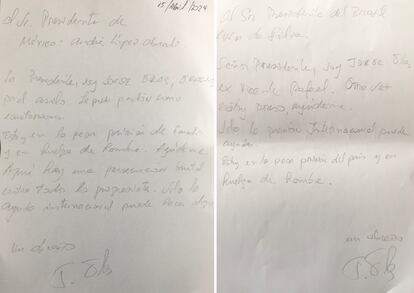 15/Abril/2024
Al Sr. Presidente de
México: André López Obrador
Sr. Presidente, soy JORGE GLAS,
por el asilo. Le pido
Estoy en la peor prisión de
y en huelga de hambre. Ayúdeme
Aquí hay una persecución brutal
contra todo lo progresista. Sólo la
ayuda internacional puede hacer algo
un abrazo
J. Glas
Al Sr. Presidente del Brasil
Lula da Silva.
Señor Presidente, soy JORGE Glas
ex Vice de Rafael. Otra vez
estoy preso, ayúdeme.
Sólo la presión Internacional puede
ayudar.
Estoy en la peor prisión del país y en
huelga de hambre.
un abrazo
J. Glas